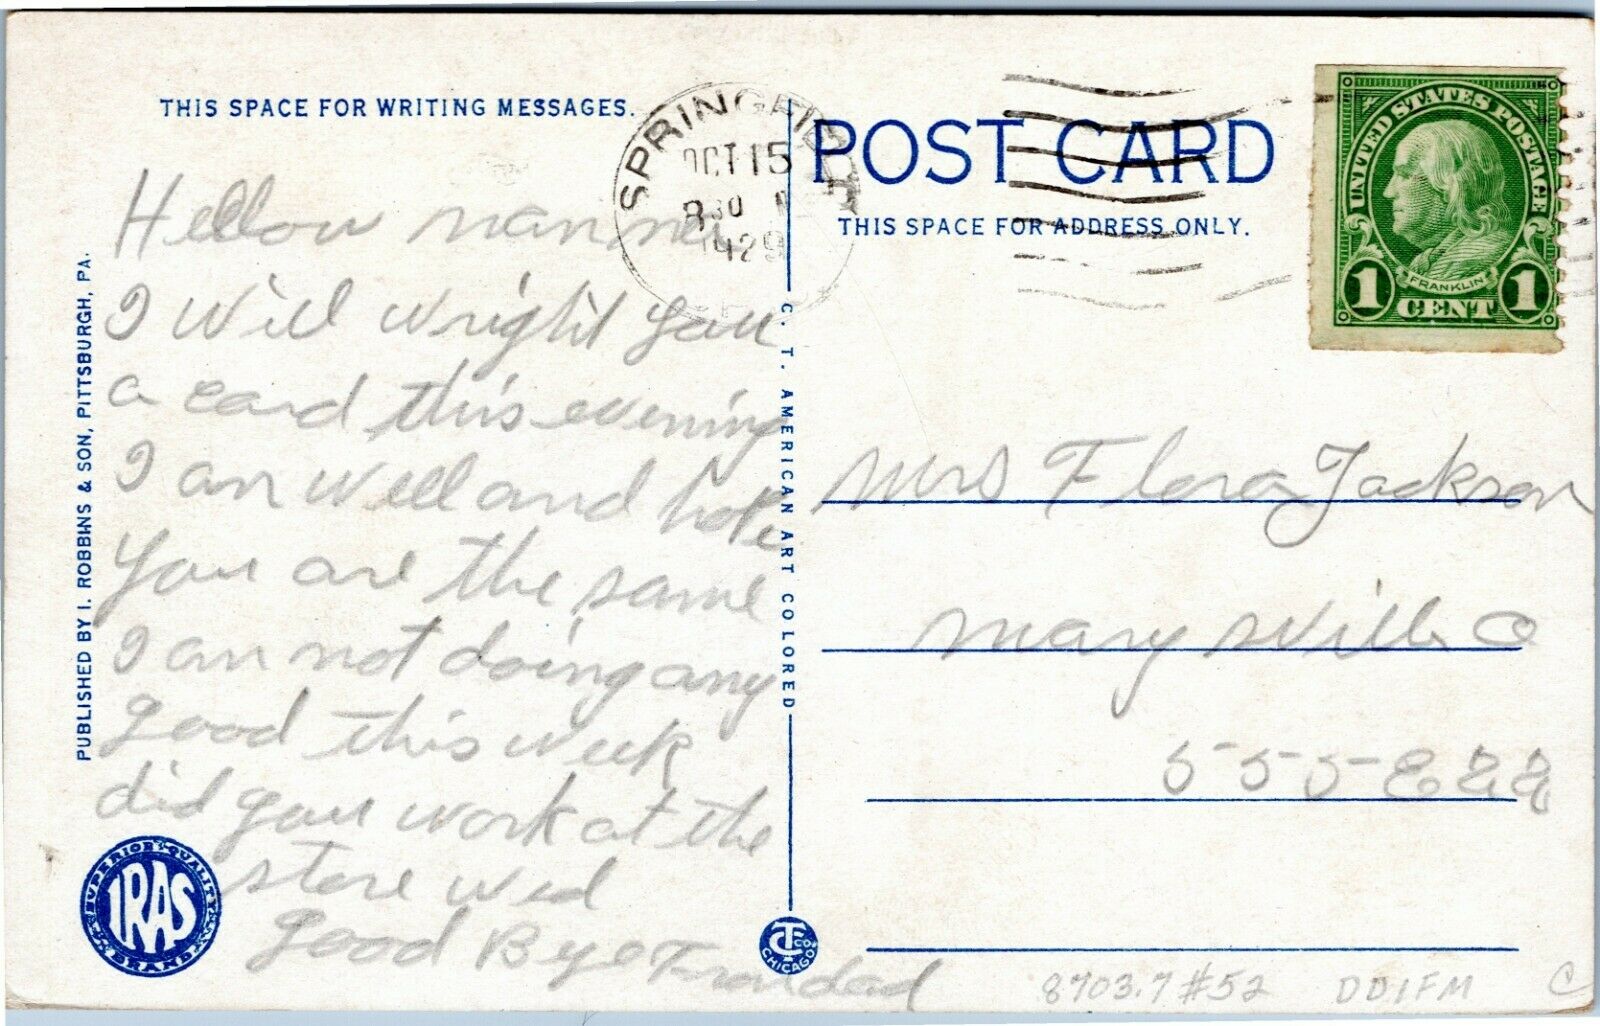 THIS SPACE FOR WRITING MESSAGES.
Hellow
I will wright you
a card this evening
I am well and hope
you are the same
I am not doing any
good this week
did you work at the
store wed
Good Bye
PUBLISHED BY I. ROBBINS & SON, PITTSBURGH, PA.
SUPERIOR QUALITY
IRAS
BRAND
C. T. AMERICAN ART COLORED
CT CO
CHICAGO
SPRINGFIELD
OCT 15
8 30
1929
POST CARD
THIS SPACE FOR ADDRESS ONLY.
UNITED STATES POSTAGE
FRANKLIN
1 CENT 1
Mrs Flora Jackson
Marysville O
555 E
8703.7 #52 DD1FM C